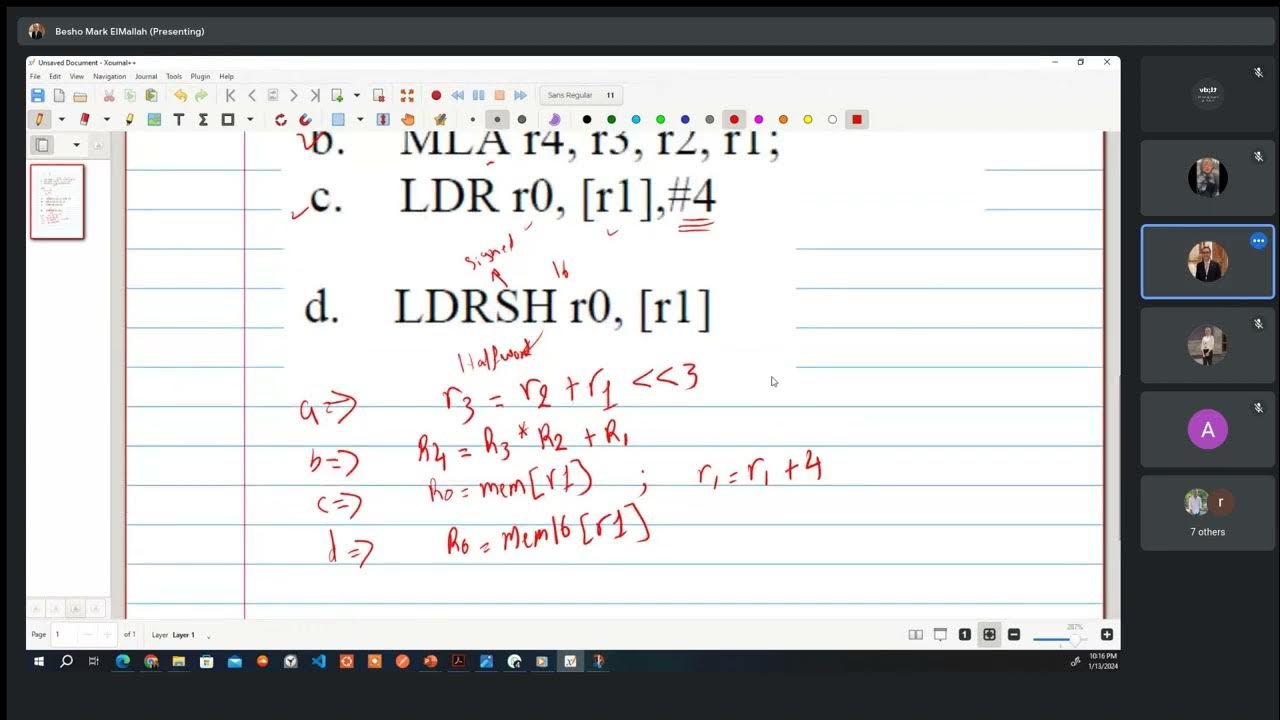 Besho Mark ElMallah (Presenting)
Unsaved Document - Xournal++
File Edit View Navigation Journal Tools Plugin Help
Sans Regular 11
b. MLA r4, r3, r2, r1;
c. LDR r0, [r1],#4
signed
16
d. LDRSH r0, [r1]
Halfword
a=> r3 = r2 + r1 <<3
b=> R4 = R3 * R2 + R1
c=> R0 = mem[r1] ; r1 = r1 + 4
d=> R0 = mem16[r1]
A
r
7 others
Page 1 of 1 Layer Layer 1
1
287%
10:16 PM
1/13/2024